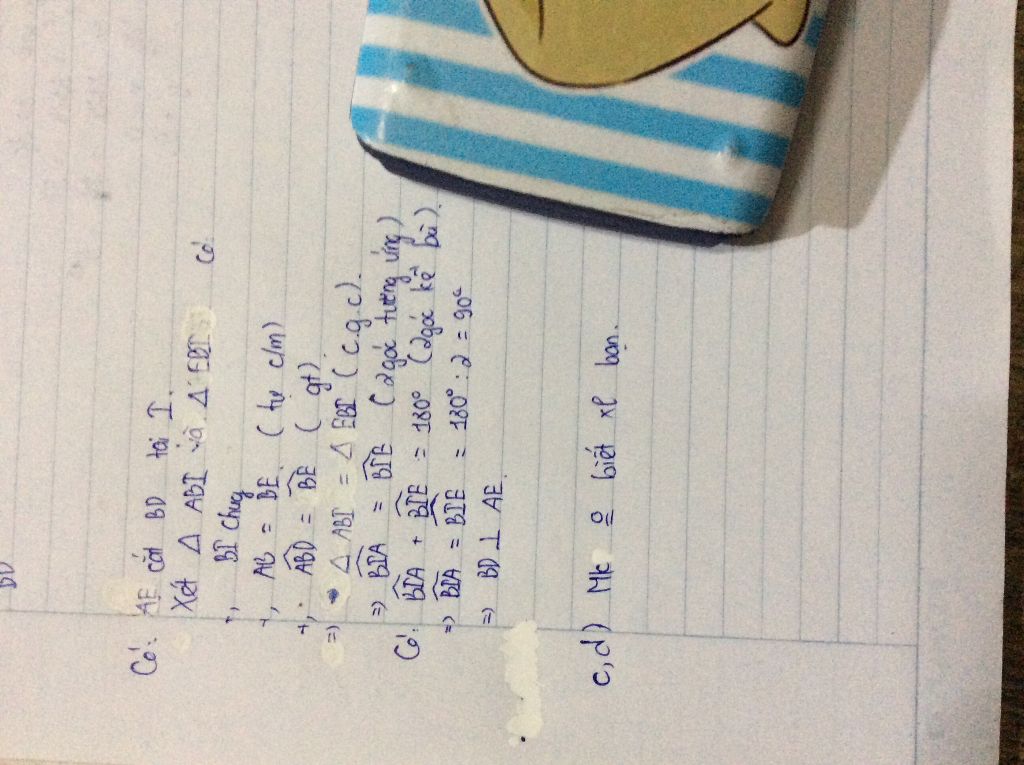 BD
Có: AE cắt BD tại I.
Xét Δ ABI và Δ EBI có:
+, BI chug
+, AB = BE (tự c/m)
+, ABD = BE ( gt)
=> Δ ABI = Δ EBI ( c.g.c).
=> BIA = BIE (2 góc tương ứng)
Có: BIA + BIE = 180° (2 góc kề bù).
=> BIA = BIE = 180° : 2 = 90°
=> BD ⊥ AE.
c,d) Mk o biết xl bạn.